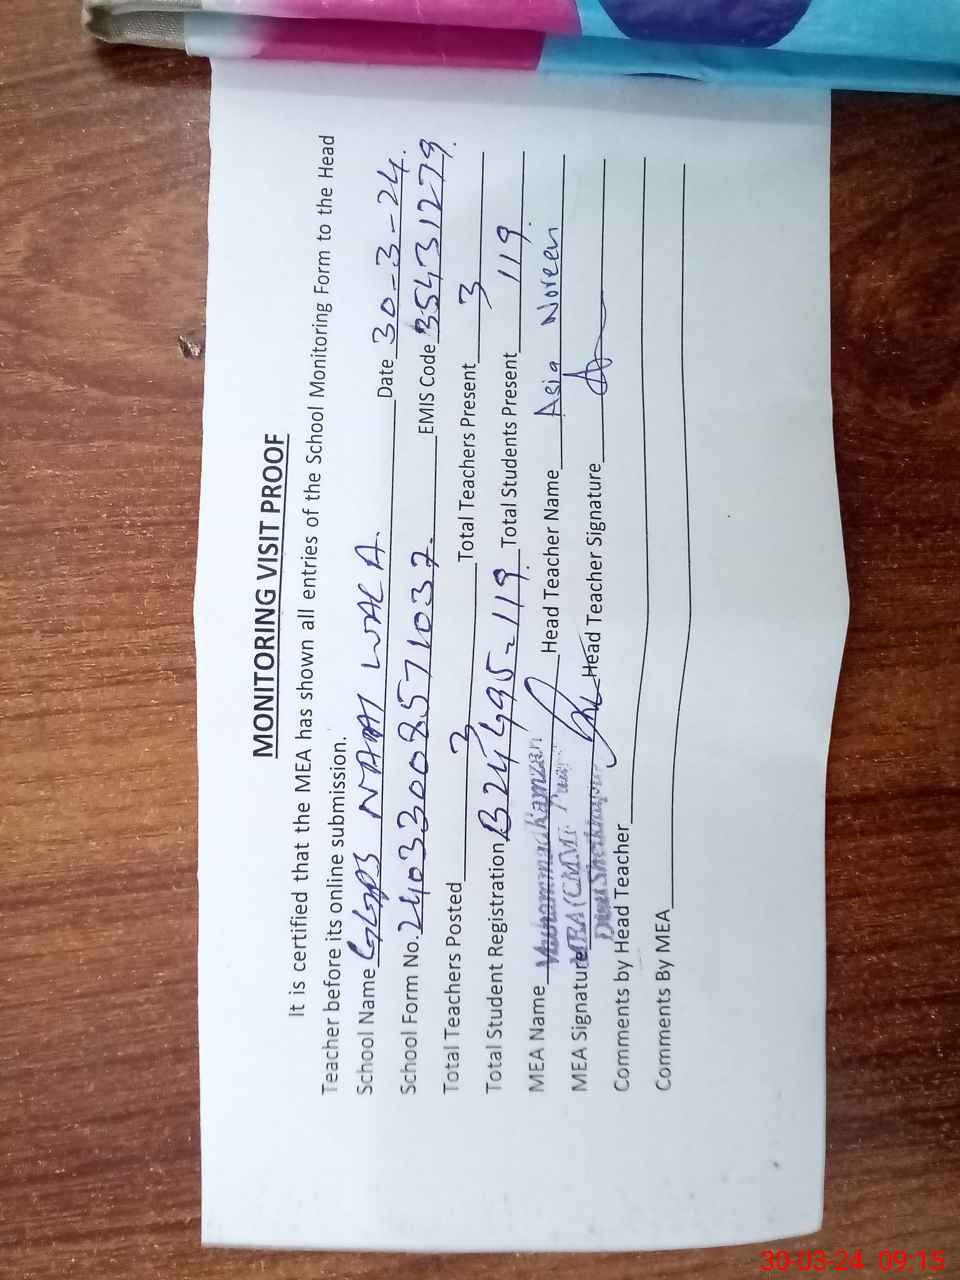 MONITORING VISIT PROOF
It is certified that the MEA has shown all entries of the School Monitoring Form to the Head
Teacher before its online submission.
School Name GGPS WALA Date 30-3-24.
School Form No. 24033008571037. EMIS Code 35431279.
Total Teachers Posted 3 Total Teachers Present 3
Total Student Registration B24495-119. Total Students Present 119.
MEA Name Muhammad Ramzan Head Teacher Name Asia Noreen
MEA Signature MEA (CMMF Head Teacher Signature
Distt Sheikhupura
Comments by Head Teacher
Comments By MEA
30-03-24 09:15